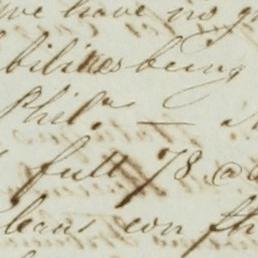 we have no
bilities being
Phila. —
full 78
leans con th